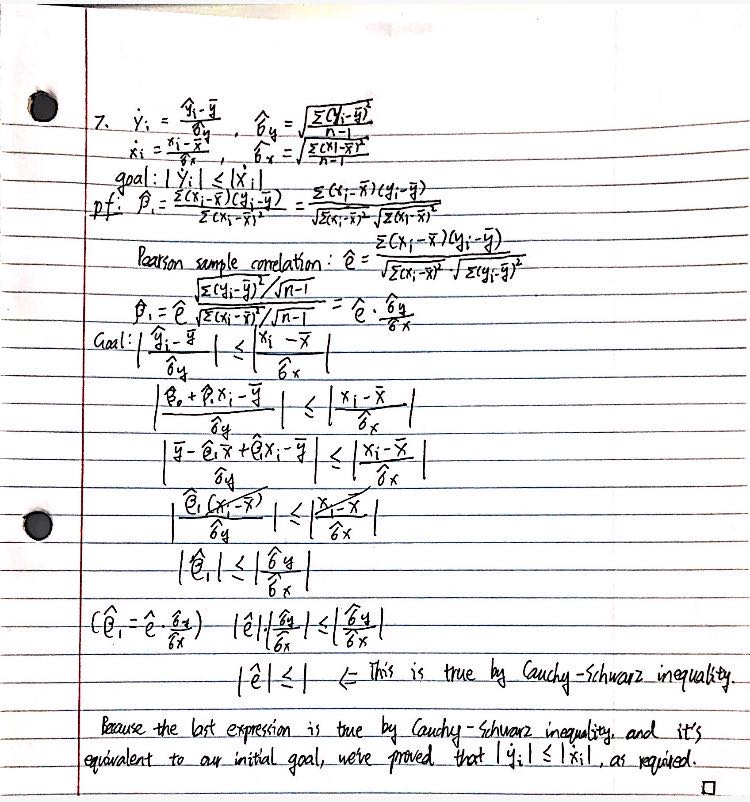 7. ẏᵢ = (ŷᵢ - ȳ)/σ̂y , σ̂y = √(Σ(yᵢ-ȳ)²/(n-1))
ẋᵢ = (xᵢ - x̄)/σ̂x , σ̂x = √(Σ(xᵢ-x̄)²/(n-1))
goal: |ẏᵢ| ≤ |ẋᵢ|
pf: β̂₁ = Σ(xᵢ-x̄)(yᵢ-ȳ)/Σ(xᵢ-x̄)² = Σ(xᵢ-x̄)(yᵢ-ȳ)/(√Σ(xᵢ-x̄)² √Σ(xᵢ-x̄)²)
Pearson sample correlation: ρ̂ = Σ(xᵢ-x̄)(yᵢ-ȳ)/(√Σ(xᵢ-x̄)² · √Σ(yᵢ-ȳ)²)
β̂₁ = ρ̂ (√Σ(yᵢ-ȳ)²/√n-1)/(√Σ(xᵢ-x̄)²/√n-1) = ρ̂ · σ̂y/σ̂x
Goal: |(ŷᵢ - ȳ)/σ̂y| ≤ |(xᵢ - x̄)/σ̂x|
|(β̂₀ + β̂₁xᵢ - ȳ)/σ̂y| ≤ |(xᵢ - x̄)/σ̂x|
|(ȳ - β̂₁x̄ + β̂₁xᵢ - ȳ)/σ̂y| ≤ |(xᵢ - x̄)/σ̂x|
|β̂₁(xᵢ - x̄)/σ̂y| ≤ |(xᵢ - x̄)/σ̂x|
|β̂₁| ≤ |σ̂y/σ̂x|
(β̂₁ = ρ̂ · σ̂y/σ̂x) |ρ̂|·|σ̂y/σ̂x| ≤ |σ̂y/σ̂x|
|ρ̂| ≤ 1 ⇐ This is true by Cauchy-Schwarz inequality.
Because the last expression is true by Cauchy-Schwarz inequality, and it's
equivalent to our initial goal, we've proved that |ẏᵢ| ≤ |ẋᵢ|, as required.
□